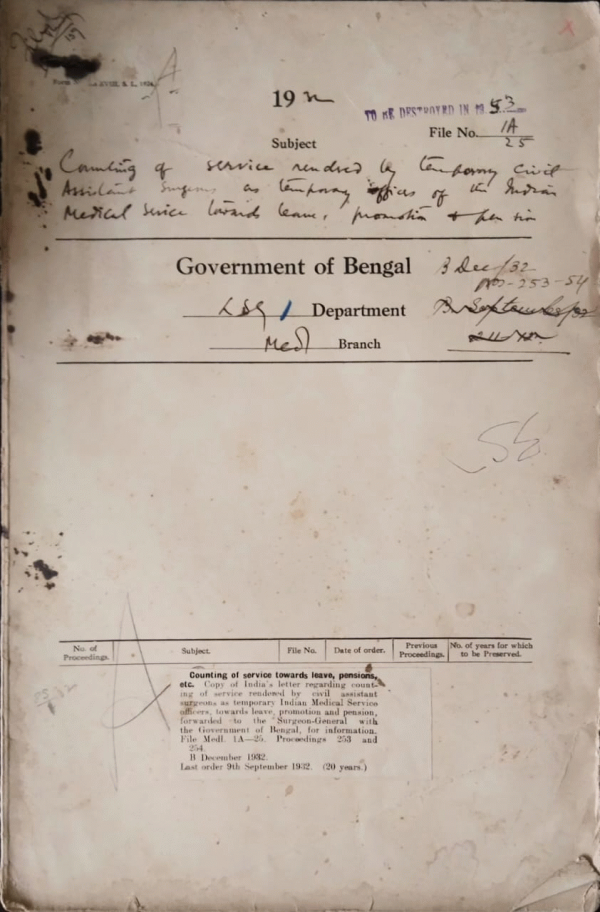 19 32
TO BE DESTROYED IN 19 53
File No. 1A
25
Subject
Counting of service rendered by temporary Civil
Assistant Surgeons as temporary officers of the Indian
Medical Service towards leave, promotion & pension
Government of Bengal
B Dec/32
Nos-253-54
LSG / Department
B September/32
Medl Branch
56
No. of Proceedings.
Subject.
File No.
Date of order.
Previous Proceedings.
No. of years for which to be Preserved.
Counting of service towards leave, pensions,
etc. Copy of India's letter regarding count-
ing of service rendered by civil assistant
surgeons as temporary Indian Medical Service
officers, towards leave, promotion and pension,
forwarded to the Surgeon-General with
the Government of Bengal, for information.
File Medl. 1A—25. Proceedings 253 and
254.
B December 1932.
Last order 9th September 1932. (20 years.)